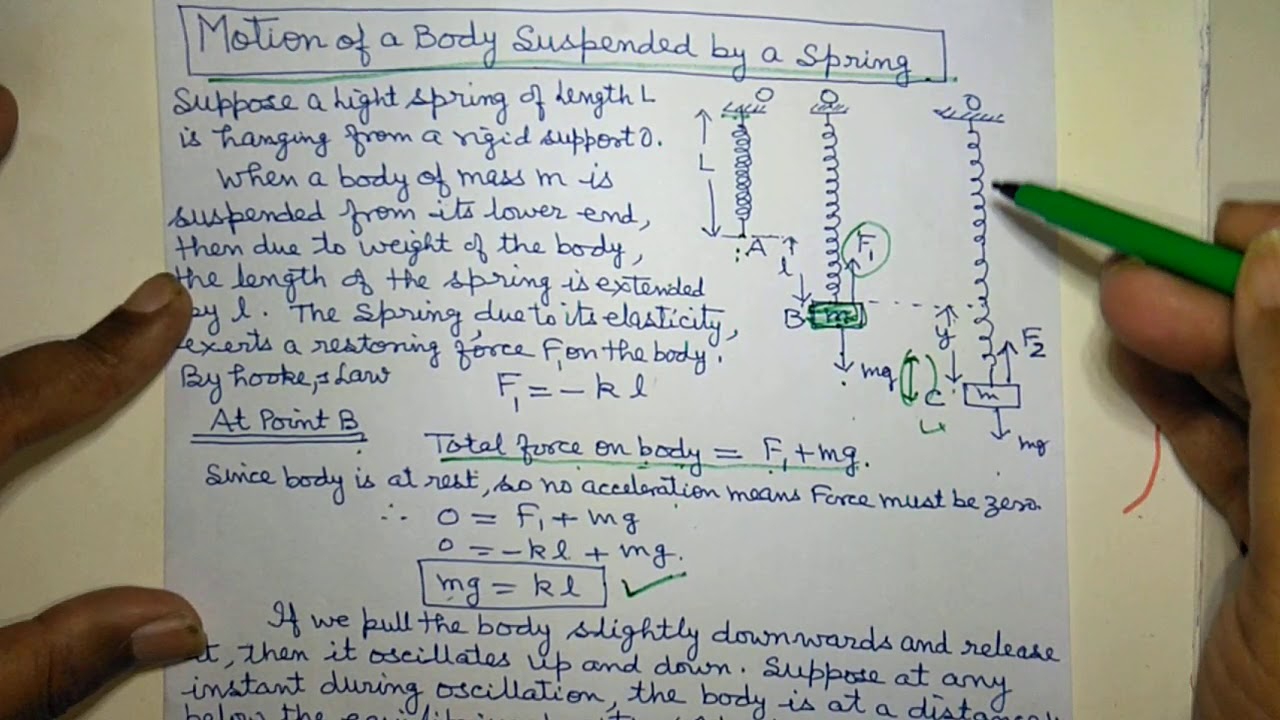 Motion of a Body Suspended by a Spring
Suppose a light spring of length L
is hanging from a rigid support O.
When a body of mass m is
suspended from its lower end,
then due to weight of the body,
the length of the spring is extended
by l. The spring, due to its elasticity,
exerts a restoring force F₁ on the body.
By hooke,s Law F₁ = - k l
At Point B
Total force on body = F₁ + mg.
Since body is at rest, so no acceleration means Force must be zero.
∴ 0 = F₁ + mg
0 = - k l + mg.
mg = k l ✓
If we pull the body slightly downwards and release
it, then it oscillates up and down. Suppose at any
instant during oscillation, the body is at a distance
below the
O
O
O
L
A
l
F₁
B
m
mg
y
F₂
C
m
mg